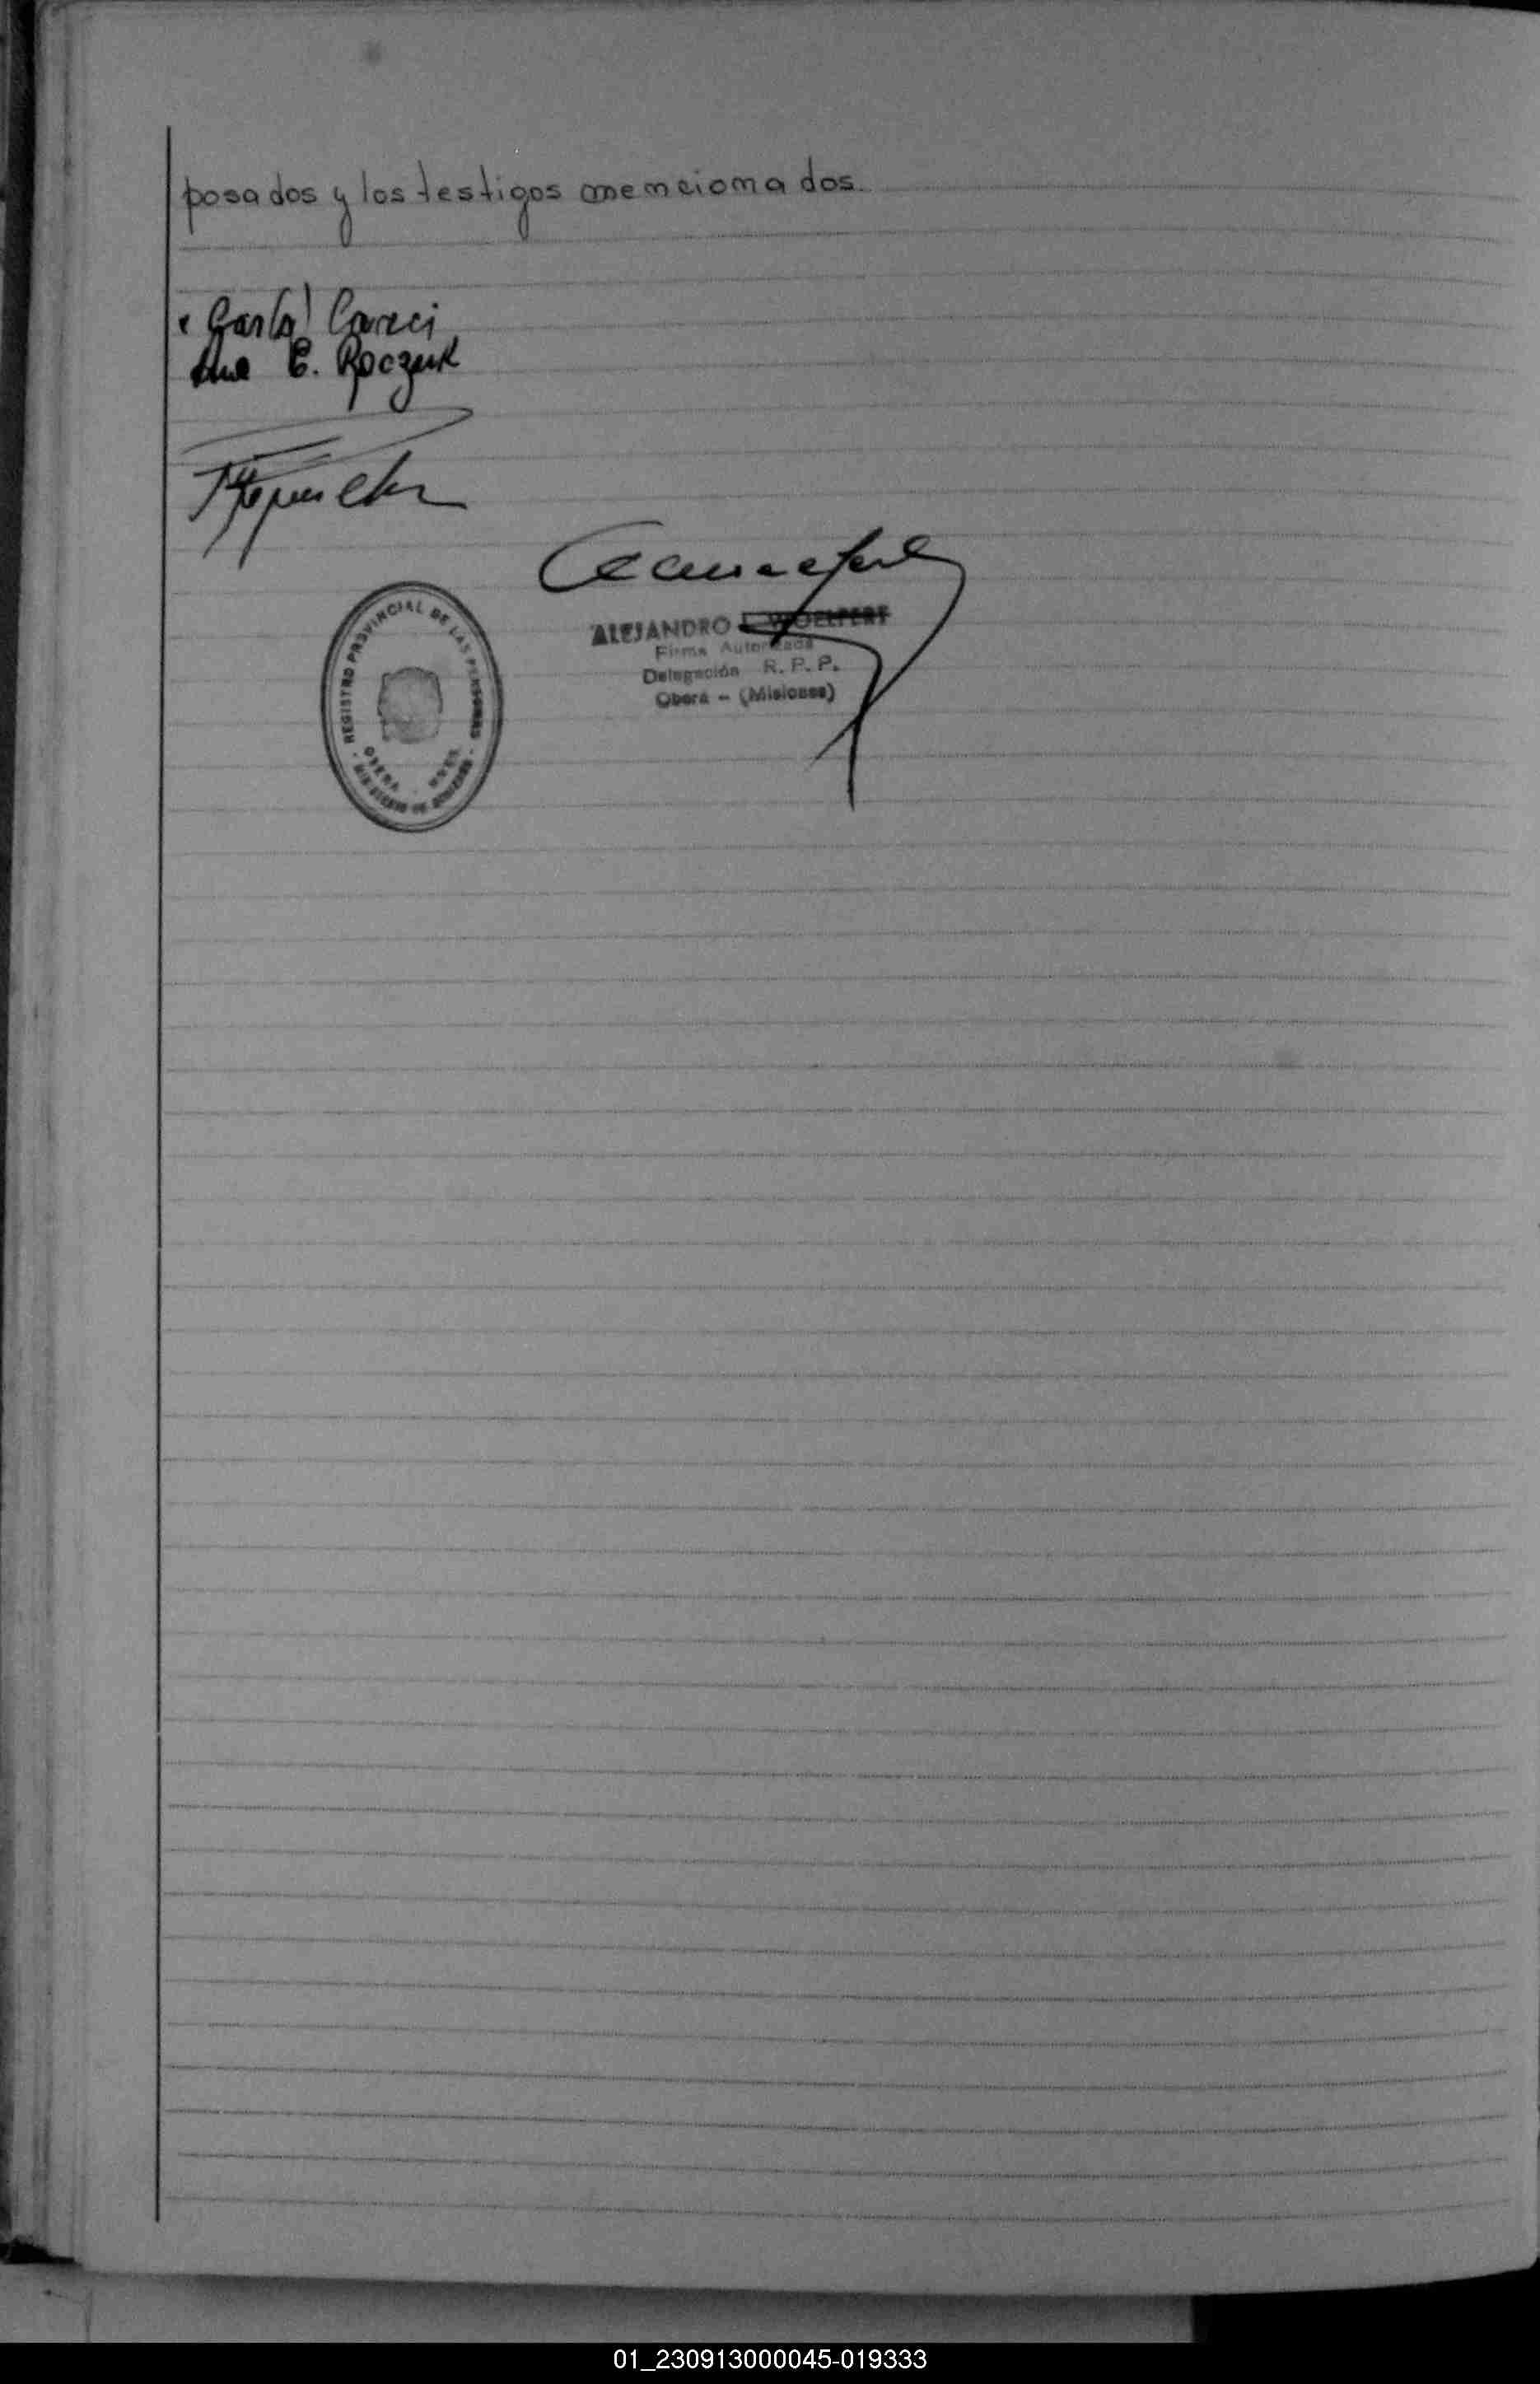 posados y los testigos mencionados.
Ana E. Roczuk
ALEJANDRO L. WOELFERT
Firma Autorizada
Delegación R. P. P.
Oberá - (Misiones)
REGISTRO PROVINCIAL DE LAS PERSONAS
OBERA - MNES.
MINISTERIO DE GOBIERNO
01_230913000045-019333